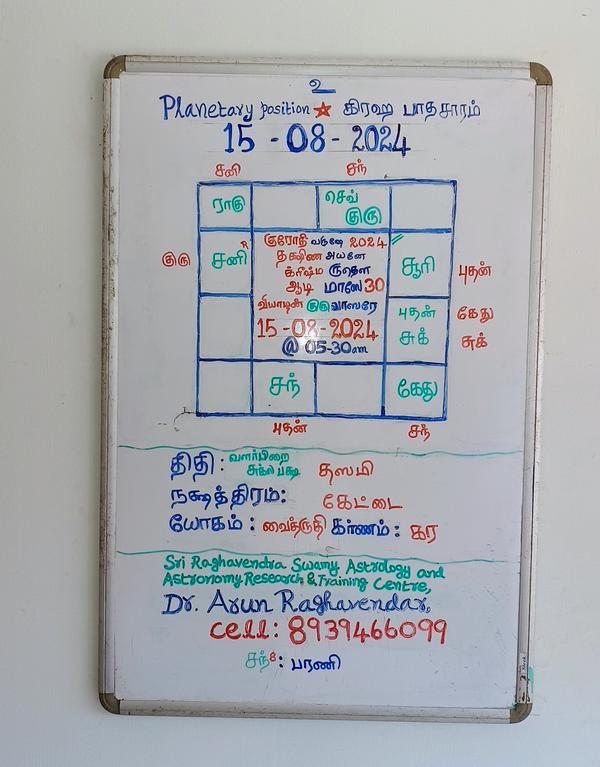 உ
Planetary position ☆ கிரஹ பாதசாரம்
15 - 08 - 2024
சனி சந்
ராகு செவ்
குரு
குரு சனி R சூரி புதன்
குரோதி வருஷ 2024
தக்ஷிண அயனே
க்ரிஷ்ம ருதௌ
ஆடி மாஸே 30
வியாழன் குரு வாஸரே
15-08-2024
@ 05-30am
புதன் கேது
சுக் சுக்
சந் கேது
புதன் சந்
திதி : வளர்பிறை
சுக்ல பக்ஷ தஸமி
நக்ஷத்திரம்: கேட்டை
யோகம் : வைத்ருதி கர்ணம் : கர
Sri Raghavendra Swamy Astrology and
Astronomy Research & Training Centre,
Dr. Arun Raghavendar,
Cell: 8939466099
சந்8: பரணி